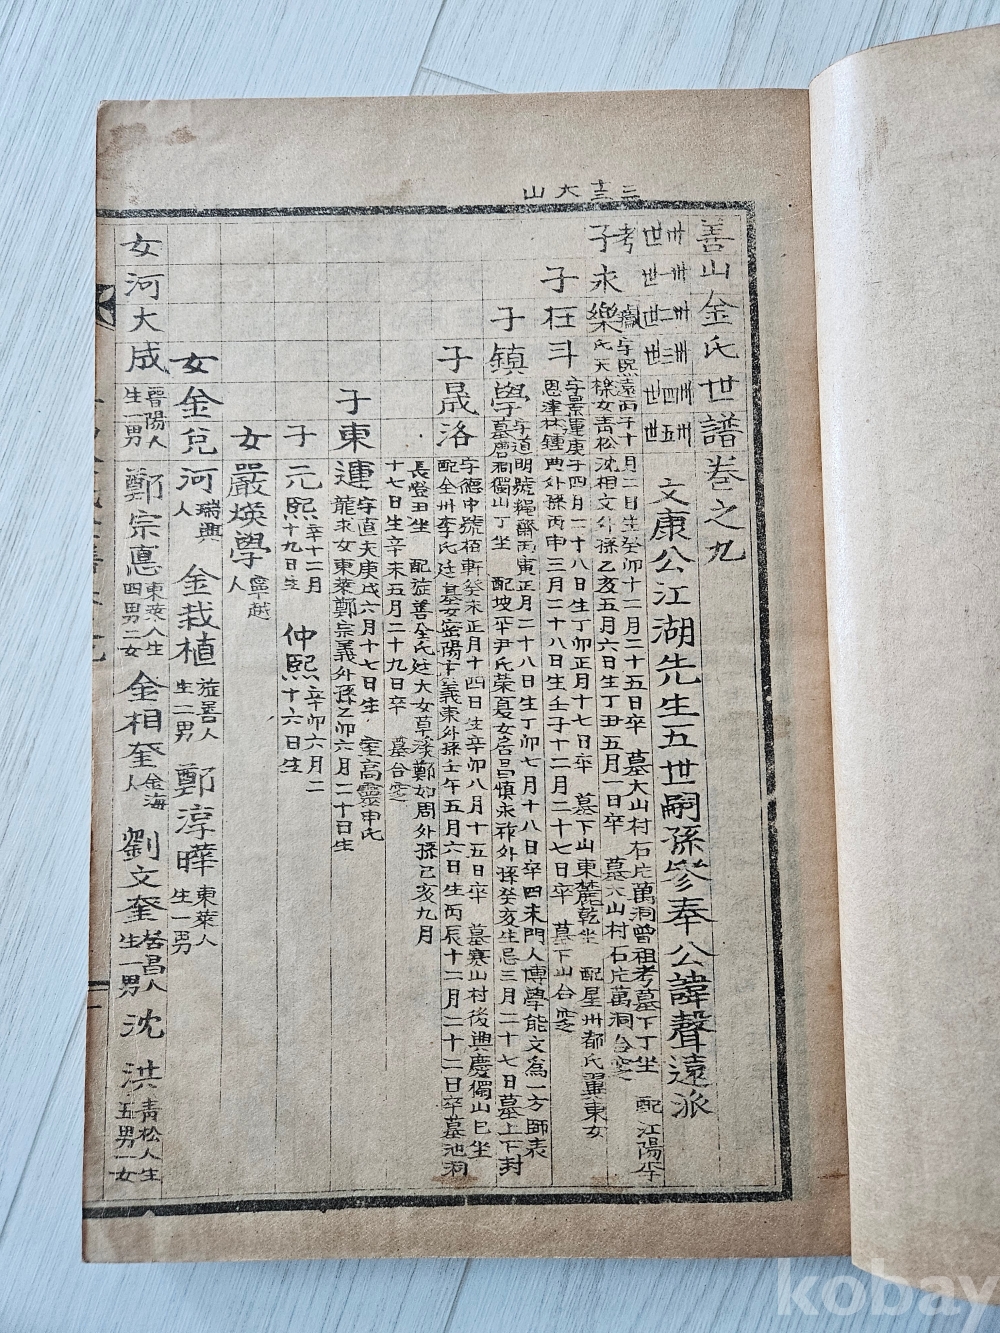 三十三 大山
善山金氏世譜卷之九
文康公江湖先生五世嗣孫參奉公諱聲遠派
世 世 世 世 世 世
卅 卅一 卅二 卅三 卅四 卅五
考
子永樂
字熙遠丙子十月二日生癸卯十二月二十五日卒 墓大山村石片萬洞曾祖考墓下丁坐 配江陽李
氏天樑女靑松沈相文外孫乙亥五月六日生丁丑五月一日卒 墓大山村石片萬洞合窆
子枉斗
字景運庚子四月二十八日生丁卯正月十七日卒 墓下山東麓乾坐 配星州都氏翼東女
恩津林鍾典外孫丙申三月二十八日生壬子十二月二十七日卒 墓下山合窆
子鎭學
字道明號糧齋丙寅正月二十八日生丁卯七月十八日卒四未門人博學能文爲一方師表
墓唐洞獨山丁坐 配坡平尹氏榮夏女居昌愼永祚外孫癸亥生忌三月二十七日墓上下封
子晟洛
字德中號栢軒癸未正月十四日生辛卯八月十五日卒 墓寒山村後典慶獨山巳坐
配全州李氏廷基女密陽卞義東外孫壬午五月六日生丙辰十二月二十二日卒墓池洞
長燈丑坐 配旋善全氏廷大女草溪鄭如周外孫己亥九月
十七日生辛未五月二十九日卒 墓合窆
子東運
字直夫庚戌六月十七日生 室高靈申氏
龍求女東萊鄭宗義外孫乙卯六月二十日生
子元熙 辛十二月十九日生
仲熙 辛卯六月二十六日生
女嚴煐學 寧越人
女金兌河 瑞興人
金栽植 旋善人生二男
鄭淳曄 東萊人生一男
女河大成 晉陽人生一男
鄭宗悳 東萊人生四男二女
金相奎 金海人
劉文奎 居昌人生一男
沈洪 靑松人生五男一女
kobay